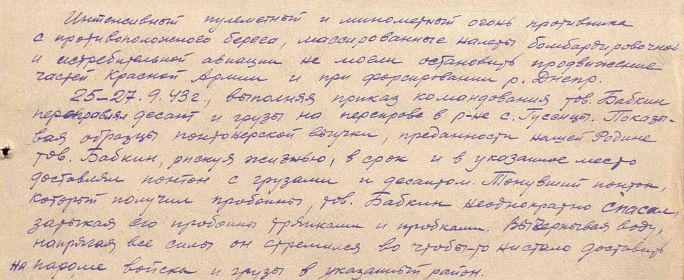 Интенсивный пулеметный и минометный огонь противника
с противоположного берега, массированные налеты бомбардировочной
и истребительной авиации не могли остановить продвижение
частей Красной Армии и при форсировании р. Днепр.
25-27.9.43г., выполняя приказ командования тов. Бабкин
переправлял десант и грузы на пароме в р-не с. Гусенцы. Показы-
вая образцы понтонерской выучки, преданности нашей Родине
тов. Бабкин, рискуя жизнью, в срок и в указанное место
доставлял понтон с грузами и десантом. Тонувший понтон,
который получил пробоины, тов. Бабкин неоднократно спасал,
затыкая его пробоины тряпками и пробками. Вычерпывая воду,
напрягая все силы он стремился во чтобы-то нистало доставить
на пароме войска и грузы в указанный район.